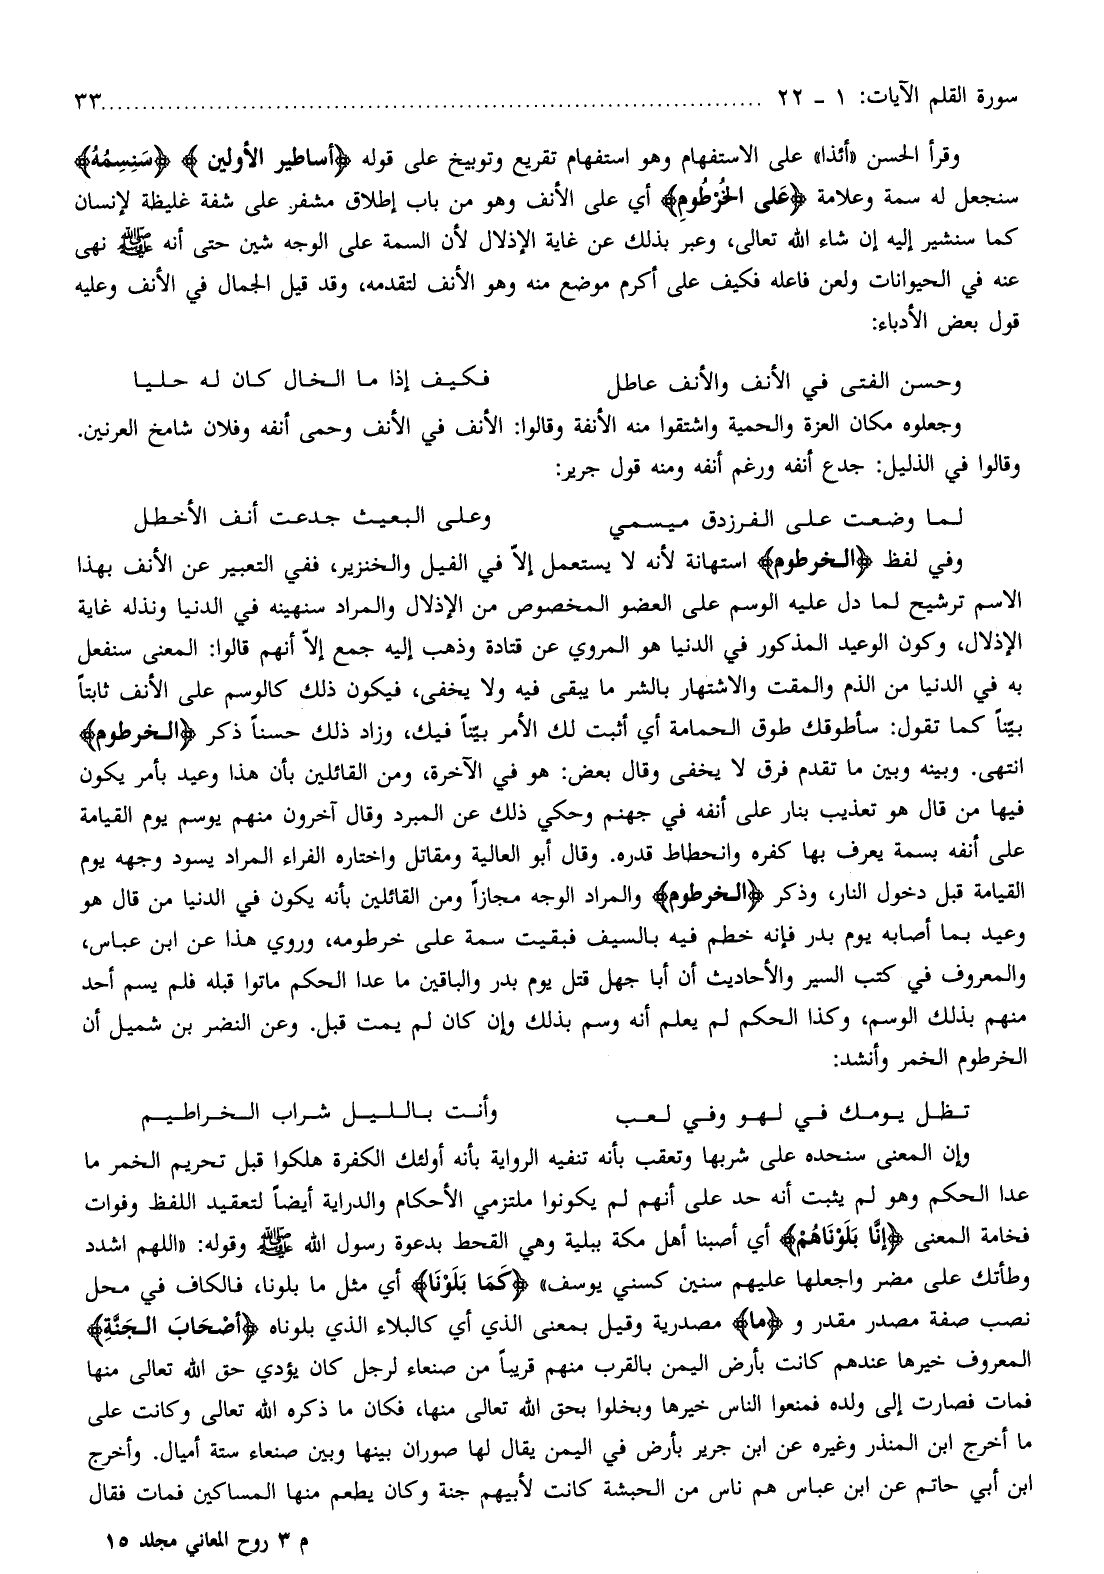 سورة القلم الآيات: ١ ـ ٢٢ ........................................................................ ٣٣
وقرأ الحسن «أئذا» على الاستفهام وهو استفهام تقريع وتوبيخ على قوله ﴿أساطير الأولين﴾ ﴿سَنِسِمُهُ﴾
سنجعل له سمة وعلامة ﴿عَلى الخُرْطُومِ﴾ أي على الأنف وهو من باب إطلاق مشفر على شفة غليظة لإنسان
كما سنشير إليه إن شاء الله تعالى، وعبر بذلك عن غاية الإذلال لأن السمة على الوجه شين حتى أنه ﷺ نهى
عنه في الحيوانات ولعن فاعله فكيف على أكرم موضع منه وهو الأنف لتقدمه، وقد قيل الجمال في الأنف وعليه
قول بعض الأدباء:
وحسن الفتى في الأنف والأنف عاطل فكيف إذا ما الخال كان له حليا
وجعلوه مكان العزة والحمية واشتقوا منه الأنفة وقالوا: الأنف في الأنف وحمى أنفه وفلان شامخ العرنين.
وقالوا في الذليل: جدع أنفه ورغم أنفه ومنه قول جرير:
لما وضعت على الفرزدق ميسمي وعلى البعيث جدعت أنف الأخطل
وفي لفظ ﴿الخرطوم﴾ استهانة لأنه لا يستعمل إلاّ في الفيل والخنزير، ففي التعبير عن الأنف بهذا
الاسم ترشيح لما دل عليه الوسم على العضو المخصوص من الإذلال والمراد سنهينه في الدنيا ونذله غاية
الإذلال، وكون الوعيد المذكور في الدنيا هو المروي عن قتادة وذهب إليه جمع إلاّ أنهم قالوا: المعنى سنفعل
به في الدنيا من الذم والمقت والاشتهار بالشر ما يبقى فيه ولا يخفى، فيكون ذلك كالوسم على الأنف ثابتاً
بيّناً كما تقول: سأطوقك طوق الحمامة أي أثبت لك الأمر بيّناً فيك، وزاد ذلك حسناً ذكر ﴿الخرطوم﴾
انتهى. وبينه وبين ما تقدم فرق لا يخفى وقال بعض: هو في الآخرة، ومن القائلين بأن هذا وعيد بأمر يكون
فيها من قال هو تعذيب بنار على أنفه في جهنم وحكي ذلك عن المبرد وقال آخرون منهم يوسم يوم القيامة
على أنفه بسمة يعرف بها كفره وانحطاط قدره. وقال أبو العالية ومقاتل واختاره الفراء المراد يسود وجهه يوم
القيامة قبل دخول النار، وذكر ﴿الخرطوم﴾ والمراد الوجه مجازاً ومن القائلين بأنه يكون في الدنيا من قال هو
وعيد بما أصابه يوم بدر فإنه خطم فيه بالسيف فبقيت سمة على خرطومه، وروي هذا عن ابن عباس،
والمعروف في كتب السير والأحاديث أن أبا جهل قتل يوم بدر والباقين ما عدا الحكم ماتوا قبله فلم يسم أحد
منهم بذلك الوسم، وكذا الحكم لم يعلم أنه وسم بذلك وإن كان لم يمت قبل. وعن النضر بن شميل أن
الخرطوم الخمر وأنشد:
تظل يومك في لهو وفي لعب وأنت بالليل شراب الخراطيم
وإن المعنى سنحده على شربها وتعقب بأنه تنفيه الرواية بأنه أولئك الكفرة هلكوا قبل تحريم الخمر ما
عدا الحكم وهو لم يثبت أنه حد على أنهم لم يكونوا ملتزمي الأحكام والدراية أيضاً لتعقيد اللفظ وفوات
فخامة المعنى ﴿إنَّا بَلَوْنَاهُمْ﴾ أي أصبنا أهل مكة ببلية وهي القحط بدعوة رسول الله ﷺ وقوله: «اللهم اشدد
وطأتك على مضر واجعلها عليهم سنين كسني يوسف» ﴿كَمَا بَلَوْنَا﴾ أي مثل ما بلونا، فالكاف في محل
نصب صفة مصدر مقدر و ﴿ما﴾ مصدرية وقيل بمعنى الذي أي كالبلاء الذي بلوناه ﴿أصْحَابَ الجَنَّةِ﴾
المعروف خيرها عندهم كانت بأرض اليمن بالقرب منهم قريباً من صنعاء لرجل كان يؤدي حق الله تعالى منها
فمات فصارت إلى ولده فمنعوا الناس خيرها وبخلوا بحق الله تعالى منها، فكان ما ذكره الله تعالى وكانت على
ما أخرج ابن المنذر وغيره عن ابن جرير بأرض في اليمن يقال لها صوران بينها وبين صنعاء ستة أميال. وأخرج
ابن أبي حاتم عن ابن عباس هم ناس من الحبشة كانت لأبيهم جنة وكان يطعم منها المساكين فمات فقال
م ٣ روح المعاني مجلد ١٥